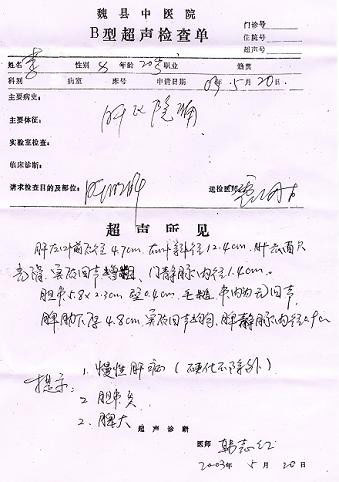 魏县中医院
B型超声检查单
门诊号
住院号
超声号
姓名 李 性别 女 年龄 20岁 职业 随费
科别 病室 床号 申请日期 03年5月20日
主要病史:
肝区隐痛
主要体征:
实验室检查:
临床诊断:
请求检查目的及部位: 送检医师
超声所见
肝左叶前后径4.7cm 右叶斜径12.4cm, 肝表面欠
亮滑, 实质回声增粗、门静脉内径1.4cm。
胆囊5.8×2.3cm 壁0.4cm, 毛糙 囊内为无回声.
脾肋下厚4.8cm, 实质回声均匀, 脾静脉内径0.9cm
提示:
1. 慢性肝病(硬化不除外)
2. 胆囊炎
2. 脾大
超声诊断
医师 韩志红
2003年5月20日